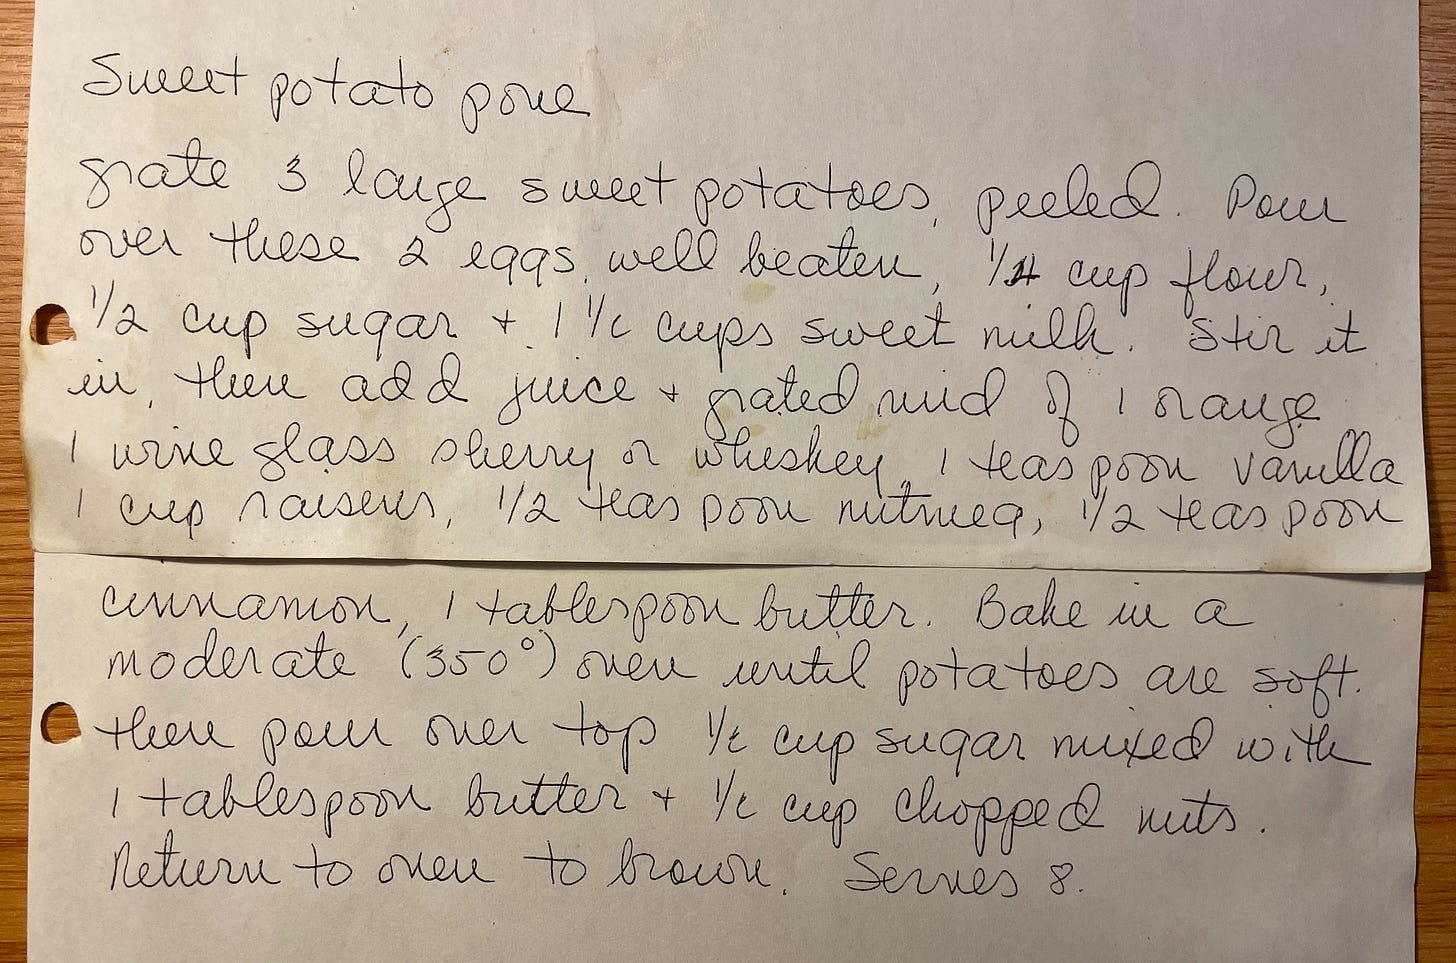 Sweet potato pone
grate 3 large sweet potatoes, peeled. Pour
over these 2 eggs, well beaten, 1/4 cup flour,
1/2 cup sugar + 1 1/2 cups sweet milk. Stir it
in, then add juice + grated rind of 1 orange
1 wine glass sherry or whiskey, 1 teaspoon vanilla
1 cup raisens, 1/2 teaspoon nutmeg, 1/2 teaspoon
cinnamon, 1 tablespoon butter. Bake in a
moderate (350°) oven until potatoes are soft.
then pour over top 1/2 cup sugar mixed with
1 tablespoon butter + 1/2 cup chopped nuts.
Return to oven to brown. Serves 8.